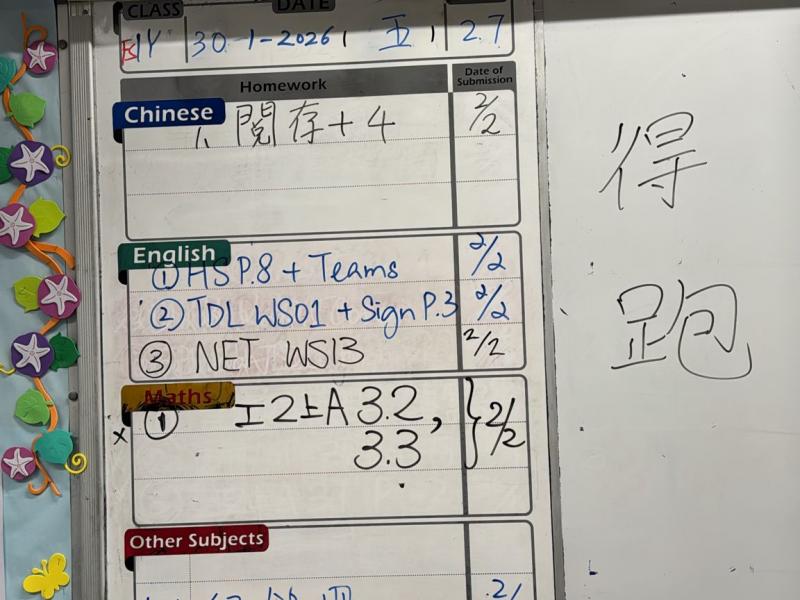 CLASS DATE
1Y 30-1-2026 五 2.7
Homework Date of Submission
Chinese
1. 閱存+4 2/2
English
① HS P.8 + Teams 2/2
② TDL WS01 + Sign P.3 2/2
③ NET WS13 2/2
Maths
x ① 工2上A 3.2, } 2/2
3.3
Other Subjects
得
跑